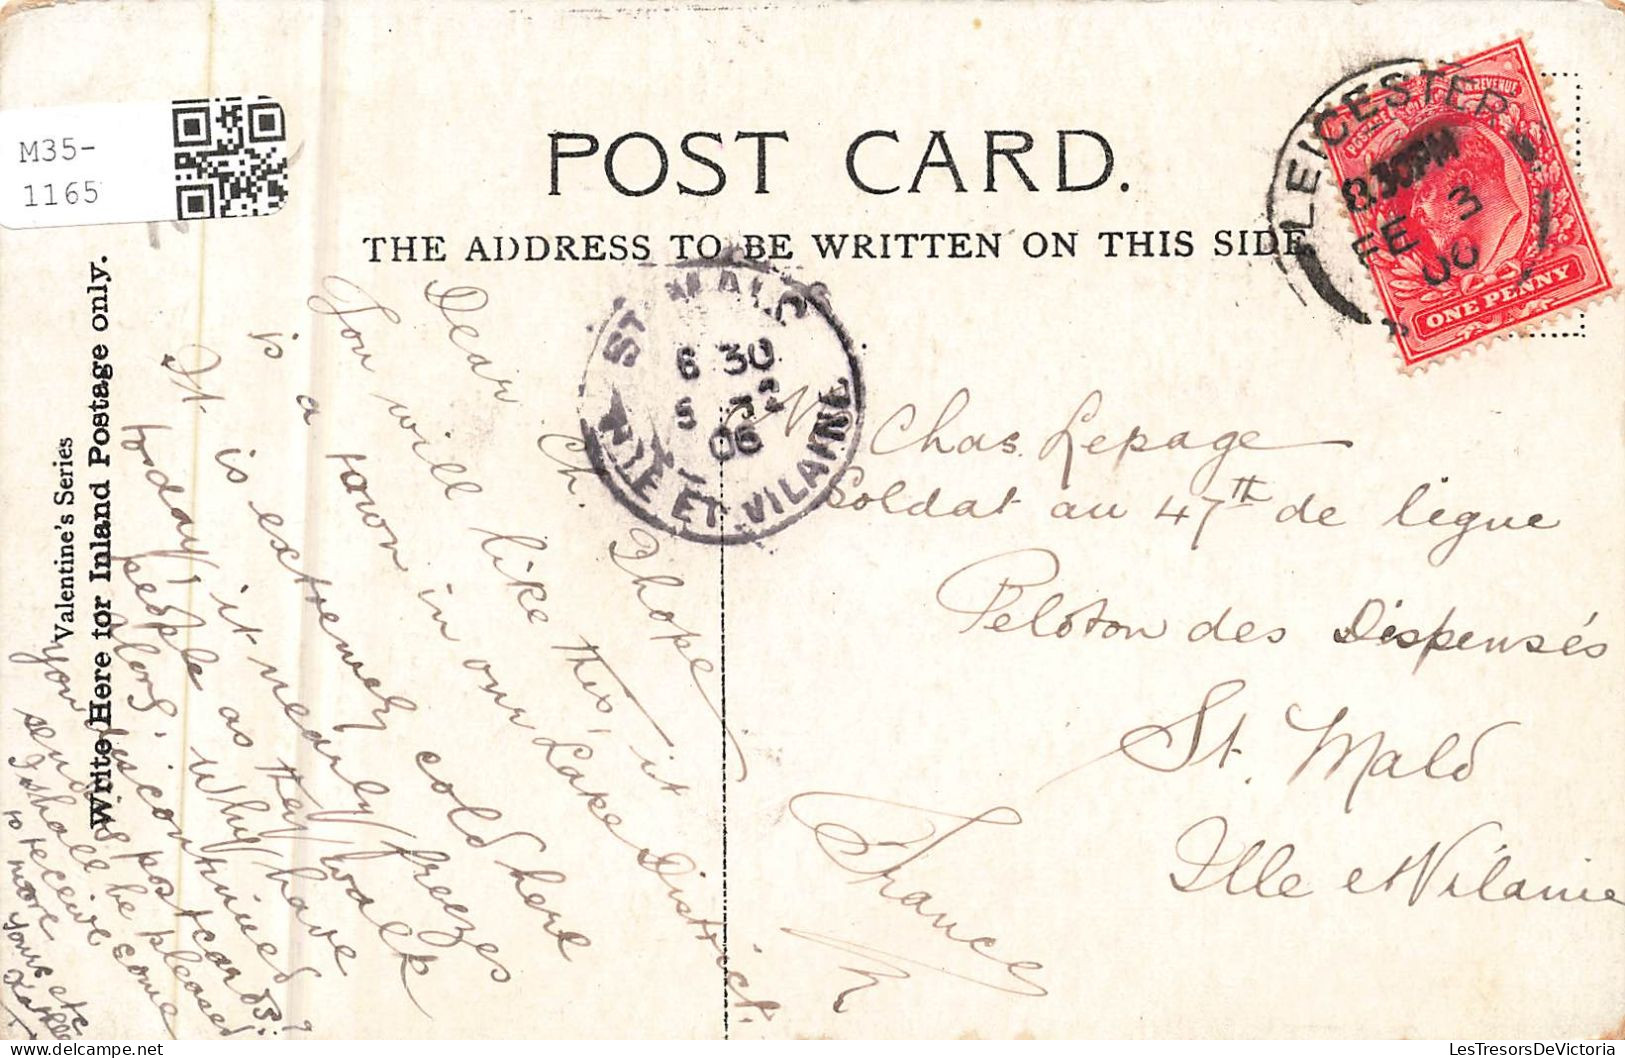 M35-
1165
POST CARD.
THE ADDRESS TO BE WRITTEN ON THIS SIDE
Valentine's Series
Write Here for Inland Postage only.
LEICESTER
8.30PM
FE 3
06
POSTAGE & REVENUE
ONE PENNY
ST MALO
6 30
5 2
06
ILLE ET VILAINE
M Chas Lepage
Soldat au 47th de ligne
Peloton des Dispensés
St. Malo
Ille et Vilanie
France
Dear Ch. I hope
You will like this, it
is a town in our Lake District.
It is extremely cold here
today, it nearly freezes
people as they walk
Why have
you discontinued
sending postcards?
I shall be pleased
to receive some
more
Yours etc
LesTresorsDeVictoria